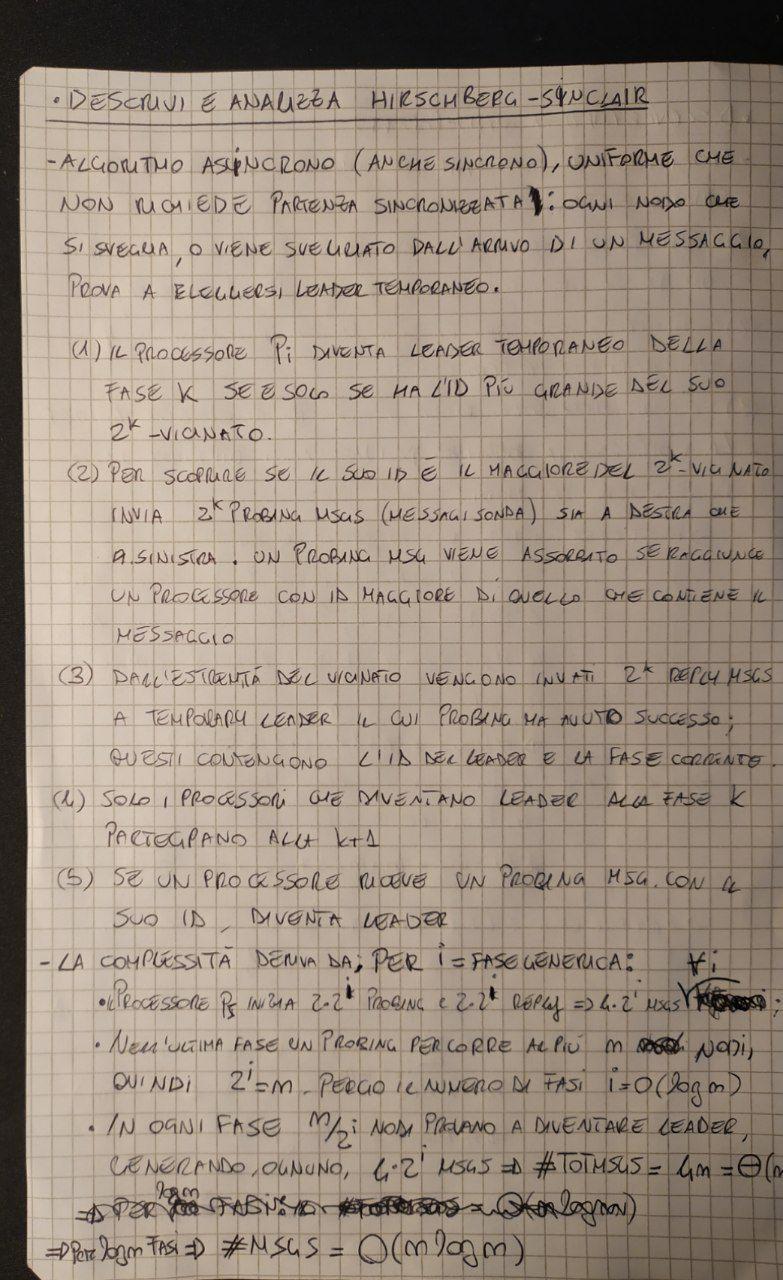 • DESCRIVI E ANALIZZA HIRSCHBERG-SINCLAIR
- ALGORITMO ASINCRONO (ANCHE SINCRONO), UNIFORME CHE
NON RICHIEDE PARTENZA SINCRONIZZATA: OGNI NODO CHE
SI SVEGLIA, O VIENE SVEGLIATO DALL'ARRIVO DI UN MESSAGGIO,
PROVA A ELEGGERSI LEADER TEMPORANEO.
(1) IL PROCESSORE Pi DIVENTA LEADER TEMPORANEO DELLA
FASE K SE E SOLO SE HA L'ID PIÙ GRANDE DEL SUO
2^K-VICINATO.
(2) PER SCOPRIRE SE IL SUO ID È IL MAGGIORE DEL 2^K-VICINATO
INVIA 2^K PROBING MSGS (MESSAGI SONDA) SIA A DESTRA CHE
A SINISTRA. UN PROBING MSG VIENE ASSORBITO SE RAGGIUNGE
UN PROCESSORE CON ID MAGGIORE DI QUELLO CHE CONTIENE IL
MESSAGGIO
(3) DALL'ESTREMITÀ DEL VICINATO VENGONO INVIATI 2^K REPLY MSGS
A TEMPORARY LEADER IL CUI PROBING HA AVUTO SUCCESSO;
QUESTI CONTENGONO L'ID DEL LEADER E LA FASE CORRENTE.
(4) SOLO I PROCESSORI CHE DIVENTANO LEADER ALLA FASE K
PARTECIPANO ALLA K+1
(5) SE UN PROCESSORE RICEVE UN PROBING MSG. CON IL
SUO ID, DIVENTA LEADER
- LA COMPLESSITÀ DERIVA DA; PER i = FASE GENERICA: ∀i
• IL PROCESSORE PJ INIZIA 2·2^i PROBING E 2·2^i REPLY => 4·2^i MSGS ;
• NELL'ULTIMA FASE UN PROBING PERCORRE AL PIÙ m NODI,
QUINDI 2^i = m. PERCIÒ IL NUMERO DI FASI i = O(log m)
• IN OGNI FASE m/2^i NODI PROVANO A DIVENTARE LEADER,
GENERANDO, OGNUNO, 4·2^i MSGS => #TOTMSGS = 4m = Θ(m
=> PER log m FASI => #MSGS = O(m log m)